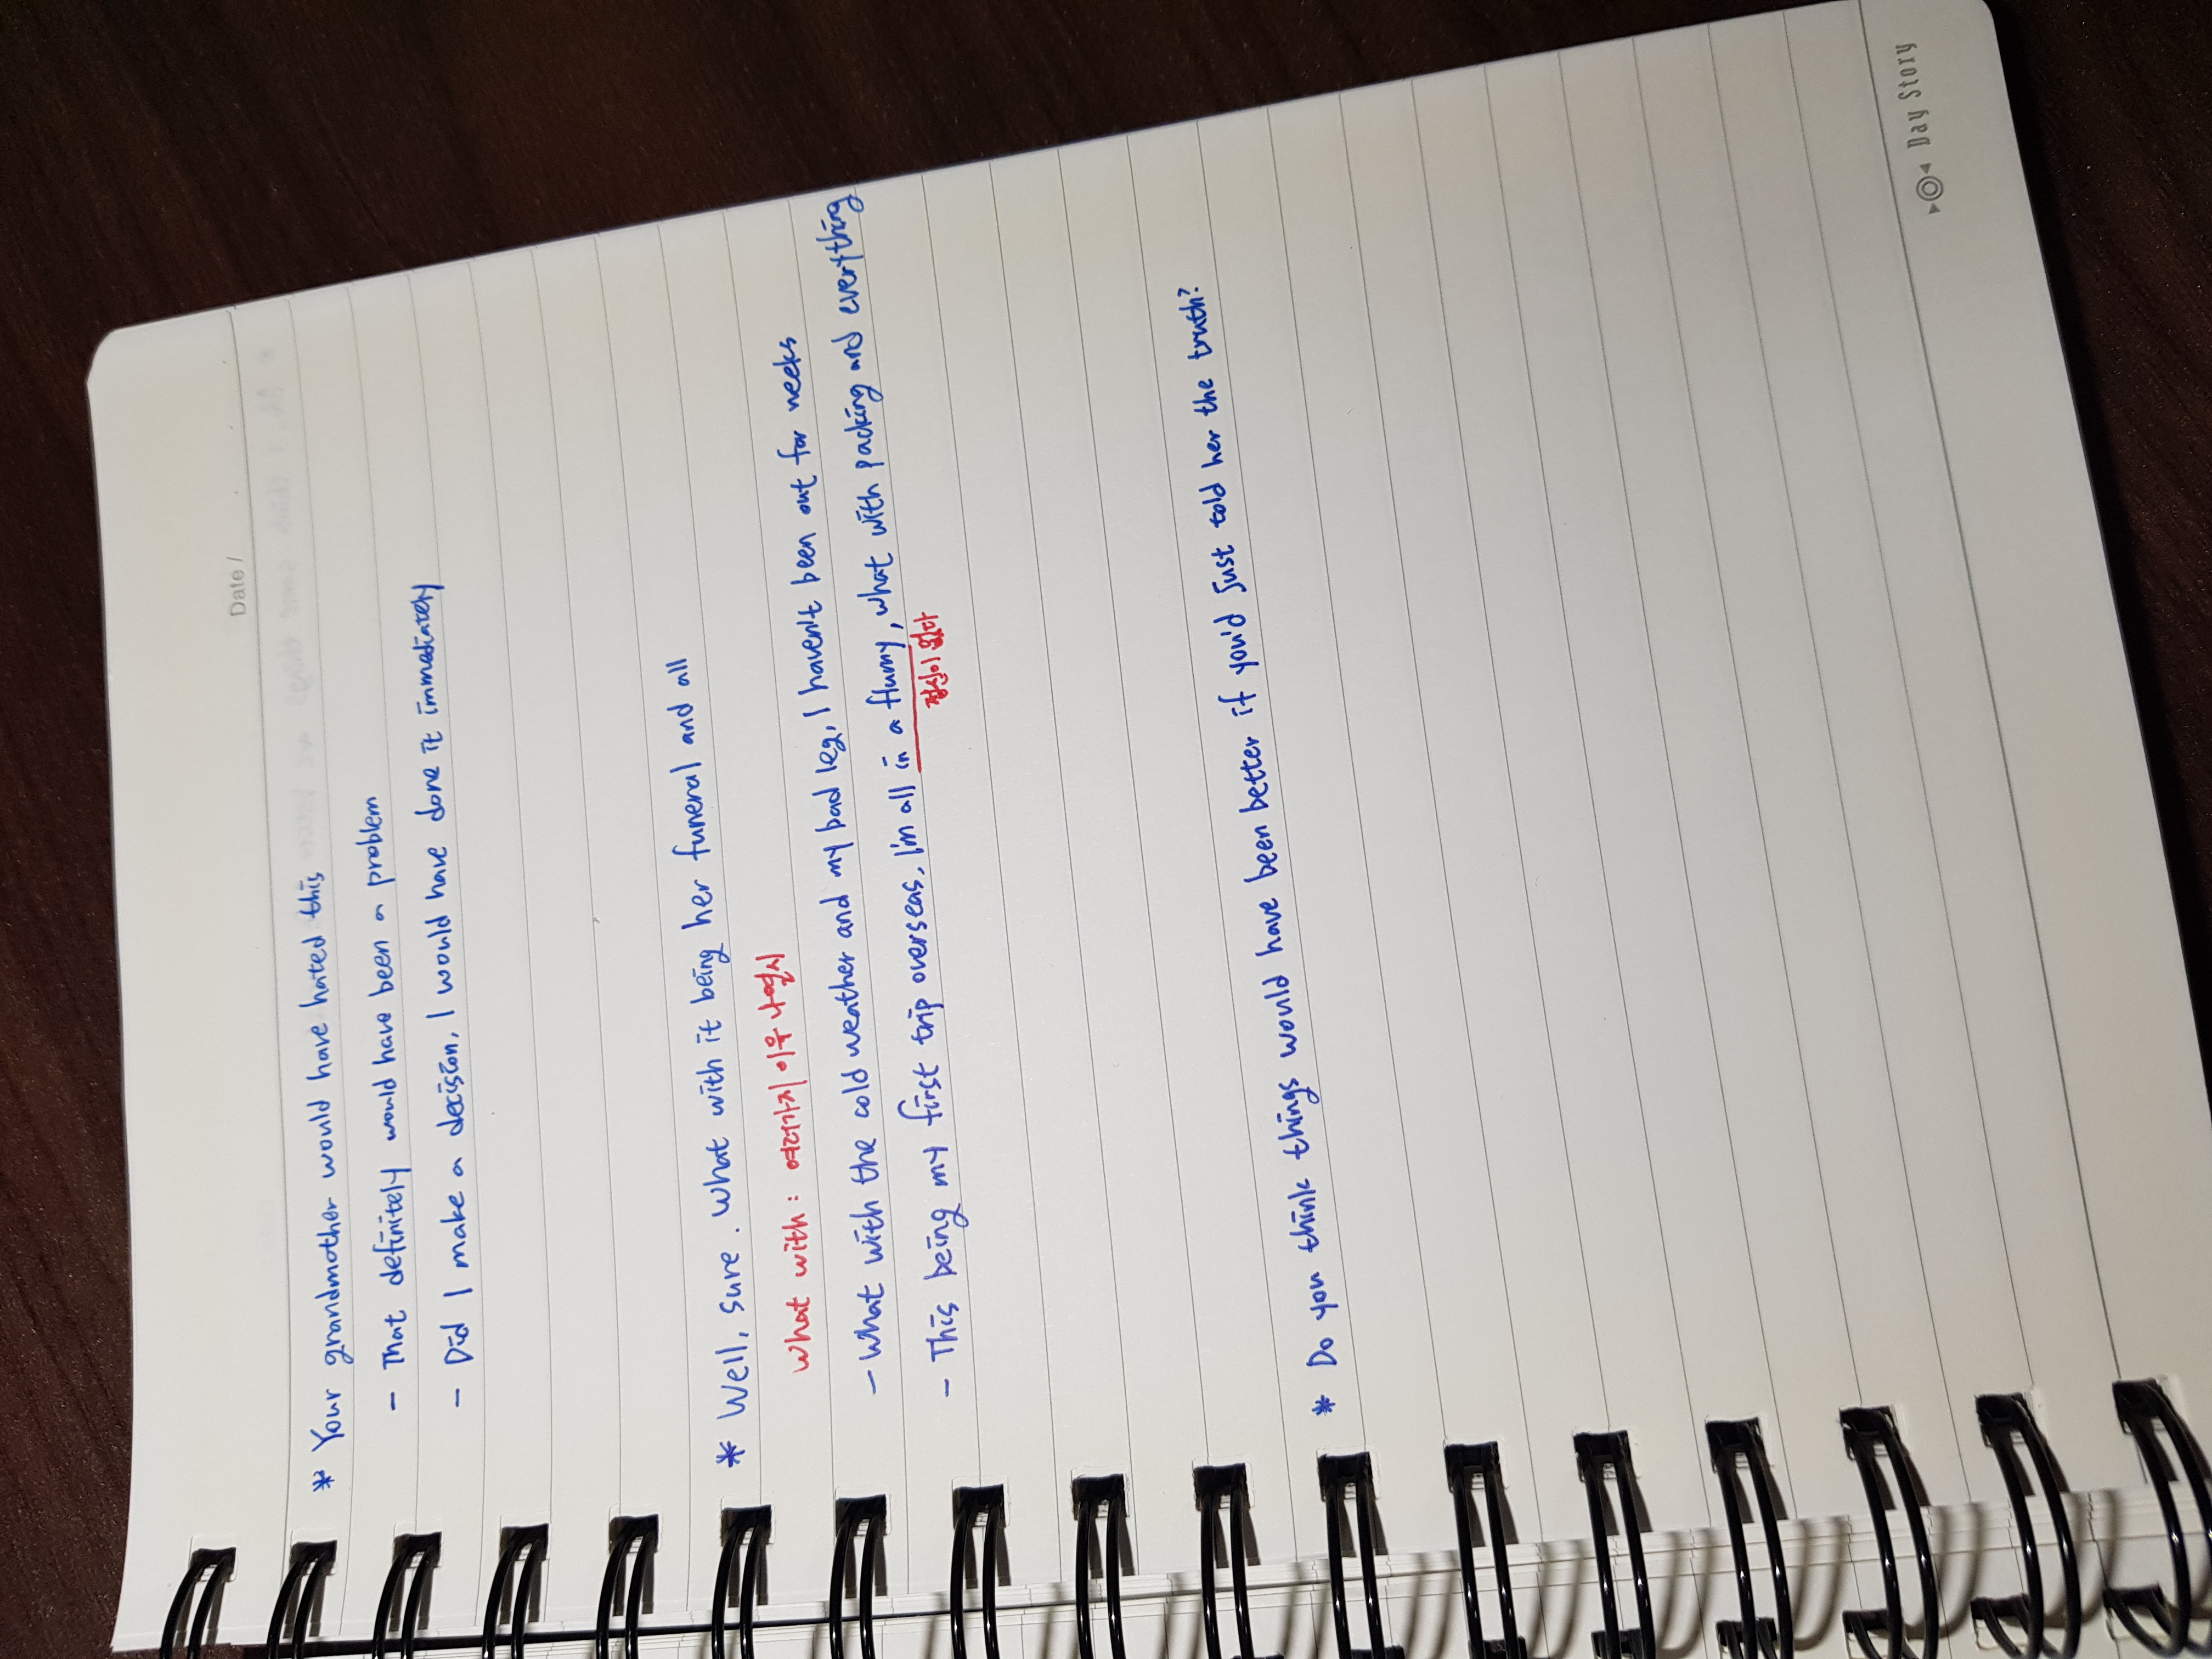 Date /
* Your grandmother would have hated this
- That definitely would have been a problem
- Did I make a decision, I would have done it immediately
* Well, sure. What with it being her funeral and all
what with : 여러가지 이유 나열시
- What with the cold weather and my bad leg, I haven't been out for weeks
- This being my first trip overseas, I'm all in a flurry, what with packing and everything
정신이 없다
* Do you think things would have been better if you'd just told her the truth?
Day Story